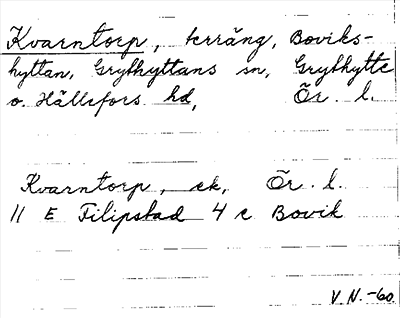 Kvarntorp, terräng, Boviks-
hyttan, Grythyttans sn, Grythytte
o. Hällefors hd, Ör. l.
Kvarntorp, ek, Ör. l.
11 E Filipstad 4 c Bovik
V.N.-60